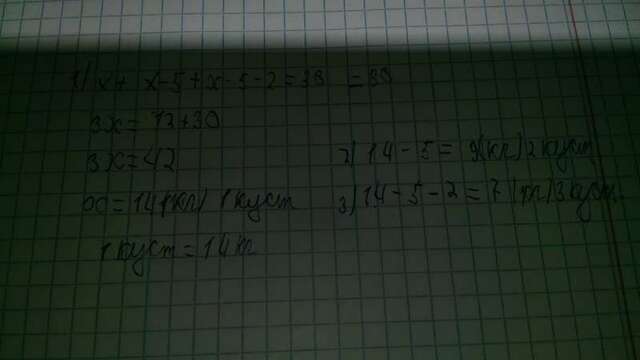 1) x + x - 5 + x - 5 - 2 = 30 = 30
3x = 12 + 30
3x = 42
x = 14 (кл) 1 куст
1 куст = 14 кл
2) 14 - 5 = 9 (кл) 2 куст
3) 14 - 5 - 2 = 7 (кл) 3 куст